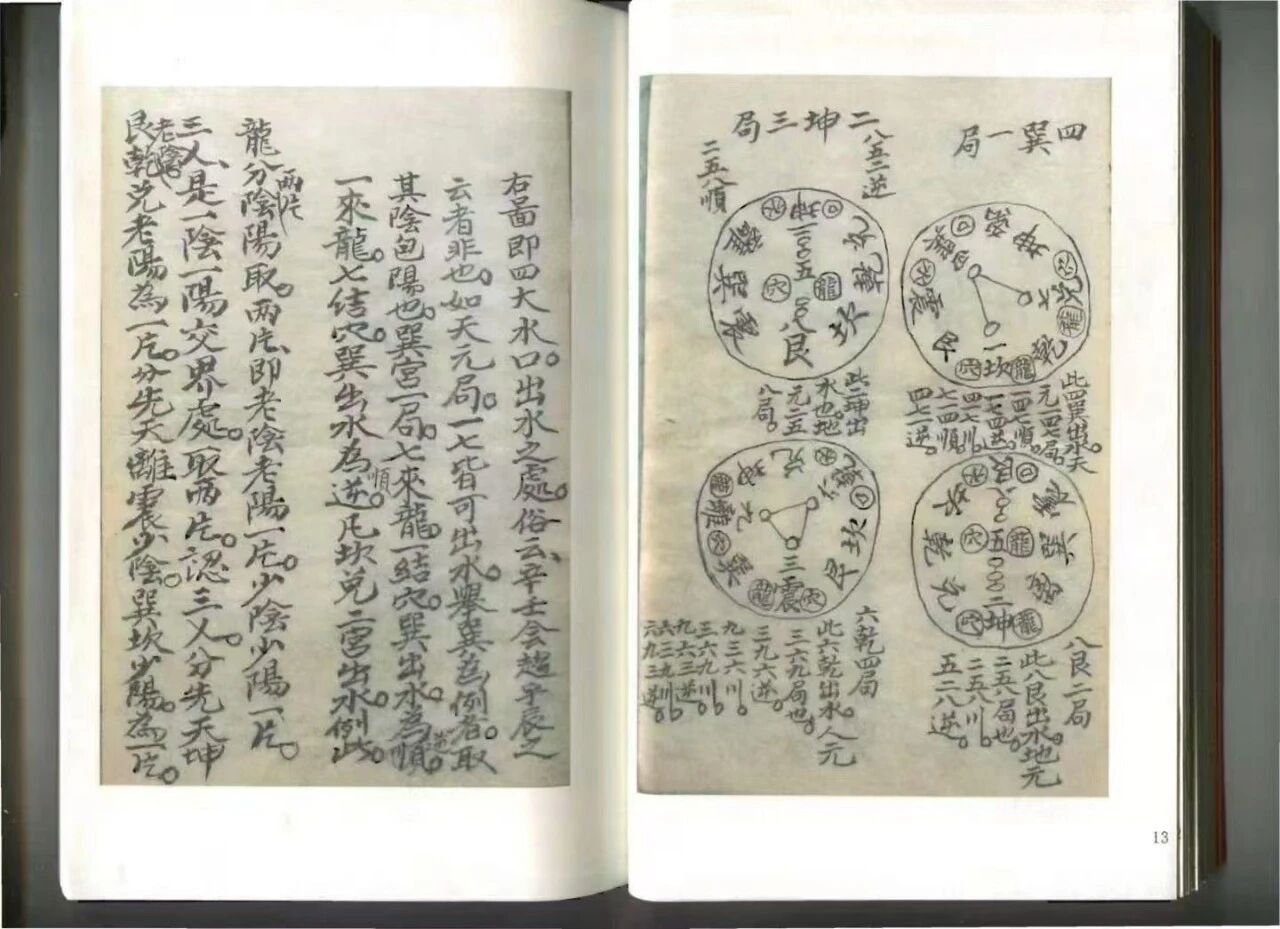 四巽一局
此四巽出水天
元一四七局
一四七順
一七四逆
四一七川
七四一順
四七一逆
八艮二局
此八艮出水地元
二五八局也
二五八川
五二八逆
二坤三局
八五二逆
二五八順
此二坤出
水也地
元二五
八局
六乾四局
此六乾出水人元
三六九局也
三九六逆
九三六川
三六九川
九六三逆
六三九川
六九三逆
右畐即四大水口出水之處俗云辛壬会趋乎辰之
云者非也如天元局一七皆可出水舉巽為例者取
其陰包陽也巽宮一局七來龍一結穴巽出水為順
一來龍七結穴巽出水為逆凡坎兌二宮出水例此
龍分陰陽取兩片即老陰老陽一片少陰少陽一片
三乂是一陰一陽交界處取兩片認三乂分先天坤
艮老陰乾兌老陽為一片分先天離震少陰巽坎少陽為一片
13